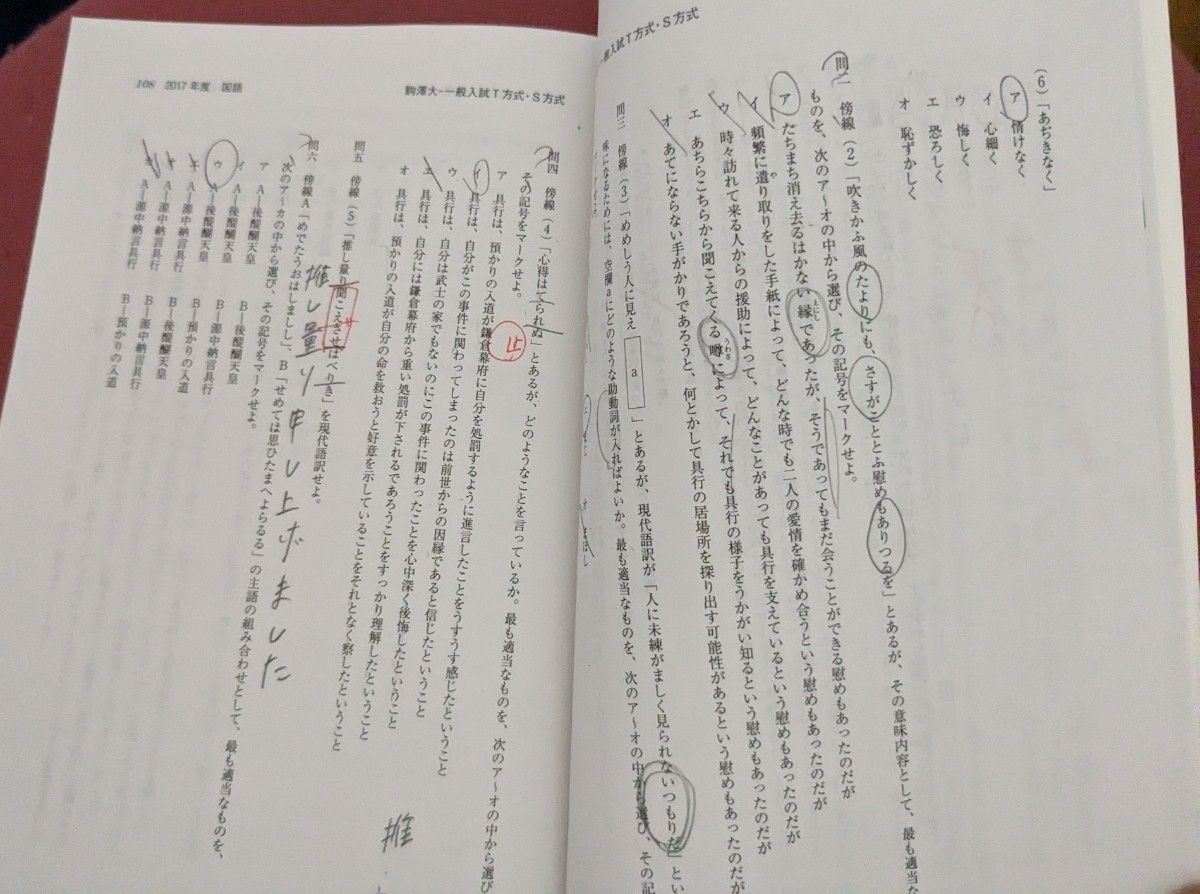 般入試T方式・S方式
(6)「あぢきなく」
ア 情けなく
イ 心細く
ウ 悔しく
エ 恐ろしく
オ 恥ずかしく
問二 傍線(2)「吹きかふ風のたよりにも、さすがこととふ慰めもありつるを」とあるが、その意味内容として、最も適当な
ものを、次のア〜オの中から選び、その記号をマークせよ。
ア たちまち消え去るはかない縁であったが、そうであってもまだ会うことができる慰めもあったのだが
イ 頻繁に遣り取りをした手紙によって、どんな時でも二人の愛情を確かめ合うという慰めもあったのだが
ウ 時々訪れて来る人からの援助によって、どんなことがあっても具行を支えているという慰めもあったのだが
エ あちらこちらから聞こえてくる噂によって、それでも具行の様子をうかがい知るという慰めもあったのだが
オ あてにならない手がかりであろうと、何とかして具行の居場所を探り出す可能性があるという慰めもあったのだが
問三 傍線(3)「めめしう人に見え a 」とあるが、現代語訳が「人に未練がましく見られないつもりだ」とい
味になるためには、空欄aにどのような助動詞が入ればよいか。最も適当なものを、次のア〜オの中から選び、その記
108 2017年度 国語
駒澤大-一般入試T方式・S方式
問四 傍線(4)「心得はてられぬ」とあるが、どのようなことを言っているか。最も適当なものを、次のア〜オの中から選び
その記号をマークせよ。
ア 具行は、預かりの入道が鎌倉幕府に自分を処罰するように進言したことをうすうす感じたということ
イ 具行は、自分がこの事件に関わってしまったのは前世からの因縁であると信じたということ
ウ 具行は、自分は武士の家でもないのにこの事件に関わったことを心中深く後悔したということ
エ 具行は、自分には鎌倉幕府から重い処罰が下されるであろうことをすっかり理解したということ
オ 具行は、預かりの入道が自分の命を救おうと好意を示していることをそれとなく察したということ
止
問五 傍線(5)「推し量り聞こえさせはべりき」を現代語訳せよ。
サ
推し量り申し上げました
問六 傍線A「めでたうおはしましし」、B「せめては思ひたまへよらるる」の主語の組み合わせとして、最も適当なものを、
次のア〜カの中から選び、その記号をマークせよ。
ア A―後醍醐天皇 B―後醍醐天皇
イ A―後醍醐天皇 B―源中納言具行
ウ A―後醍醐天皇 B―預かりの入道
A―源中納言具行 B―後醍醐天皇
A―源中納言具行 B―源中納言具行
A―源中納言具行 B―預かりの入道
推